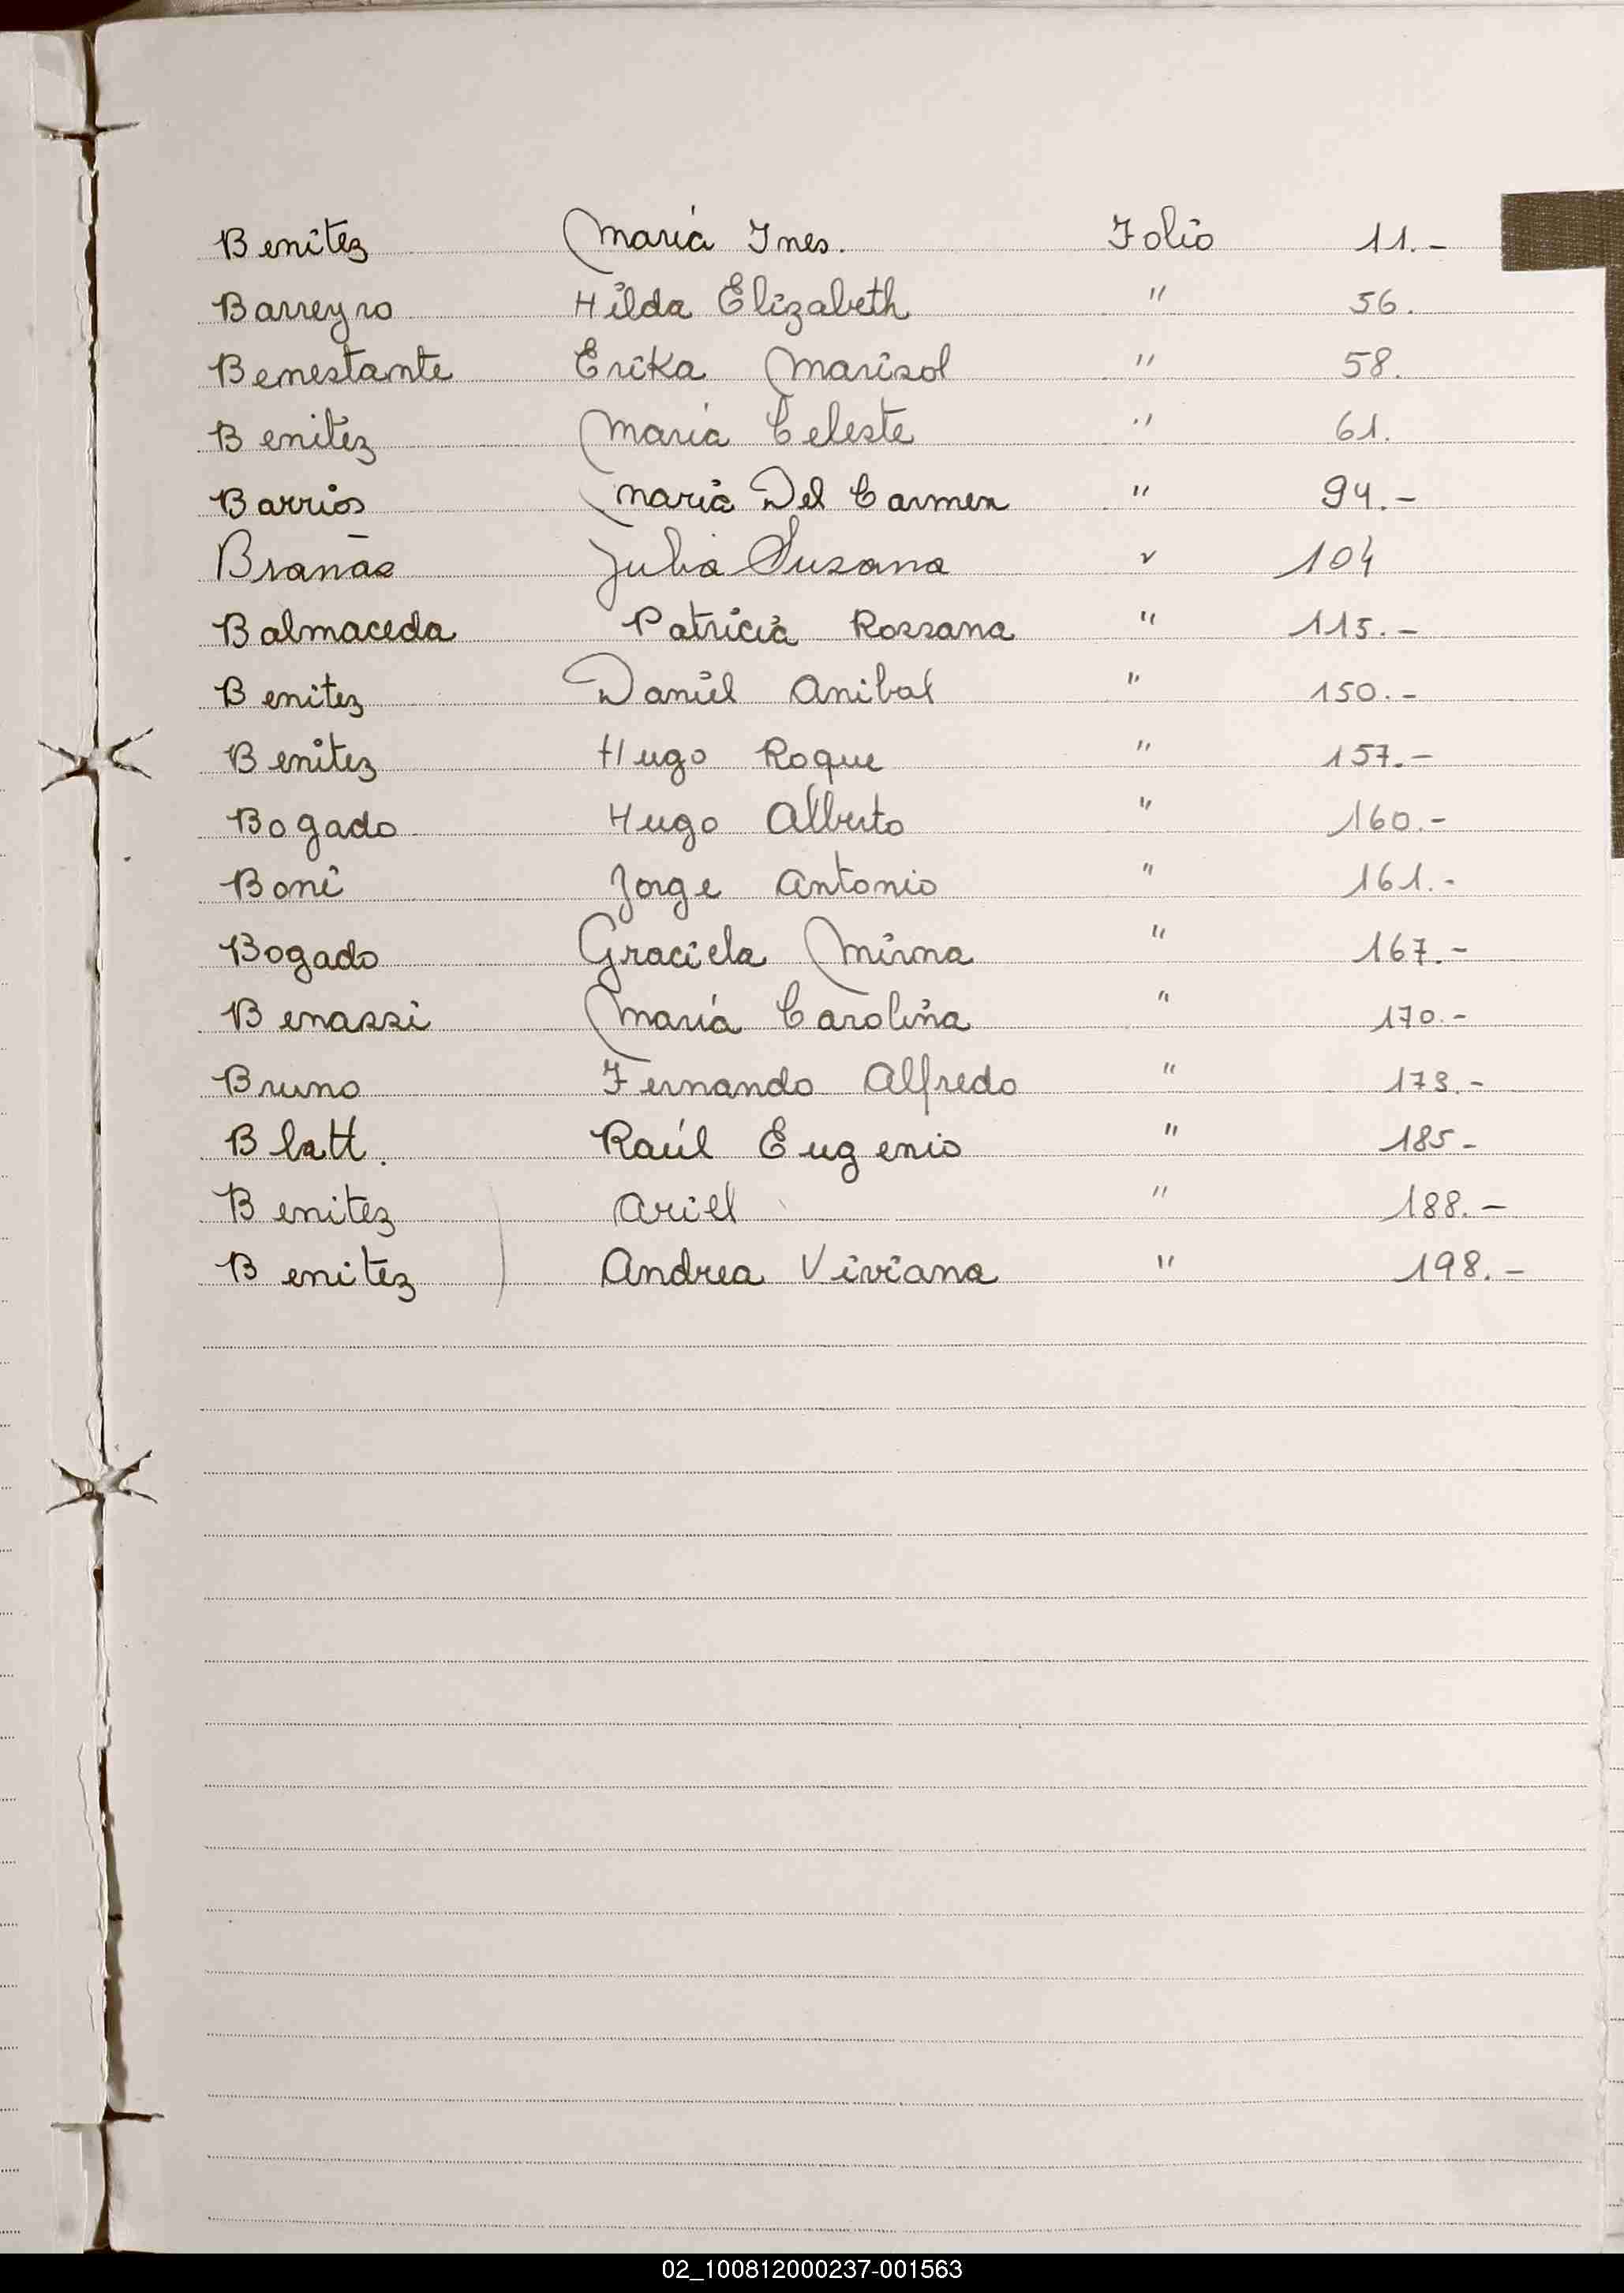 Benitez María Ines. Folio 11.-
Barreyro Hilda Elizabeth " 56.
Benestante Erika Marisol " 58.
Benitez María Celeste " 61.
Barrios María Del Carmen " 94.-
Brañas Julia Susana " 104
Balmaceda Patricia Rossana " 115.-
Benitez Daniel Anibal " 150.-
Benitez Hugo Roque " 157.-
Bogado Hugo Alberto " 160.-
Boni Jorge Antonio " 161.-
Bogado Graciela Mirna " 167.-
Benassi María Carolina " 170.-
Bruno Fernando Alfredo " 173.-
Blatt. Raúl Eugenio " 185-
Benitez Ariel " 188.-
Benitez Andrea Viviana " 198.-
02_100812000237-001563